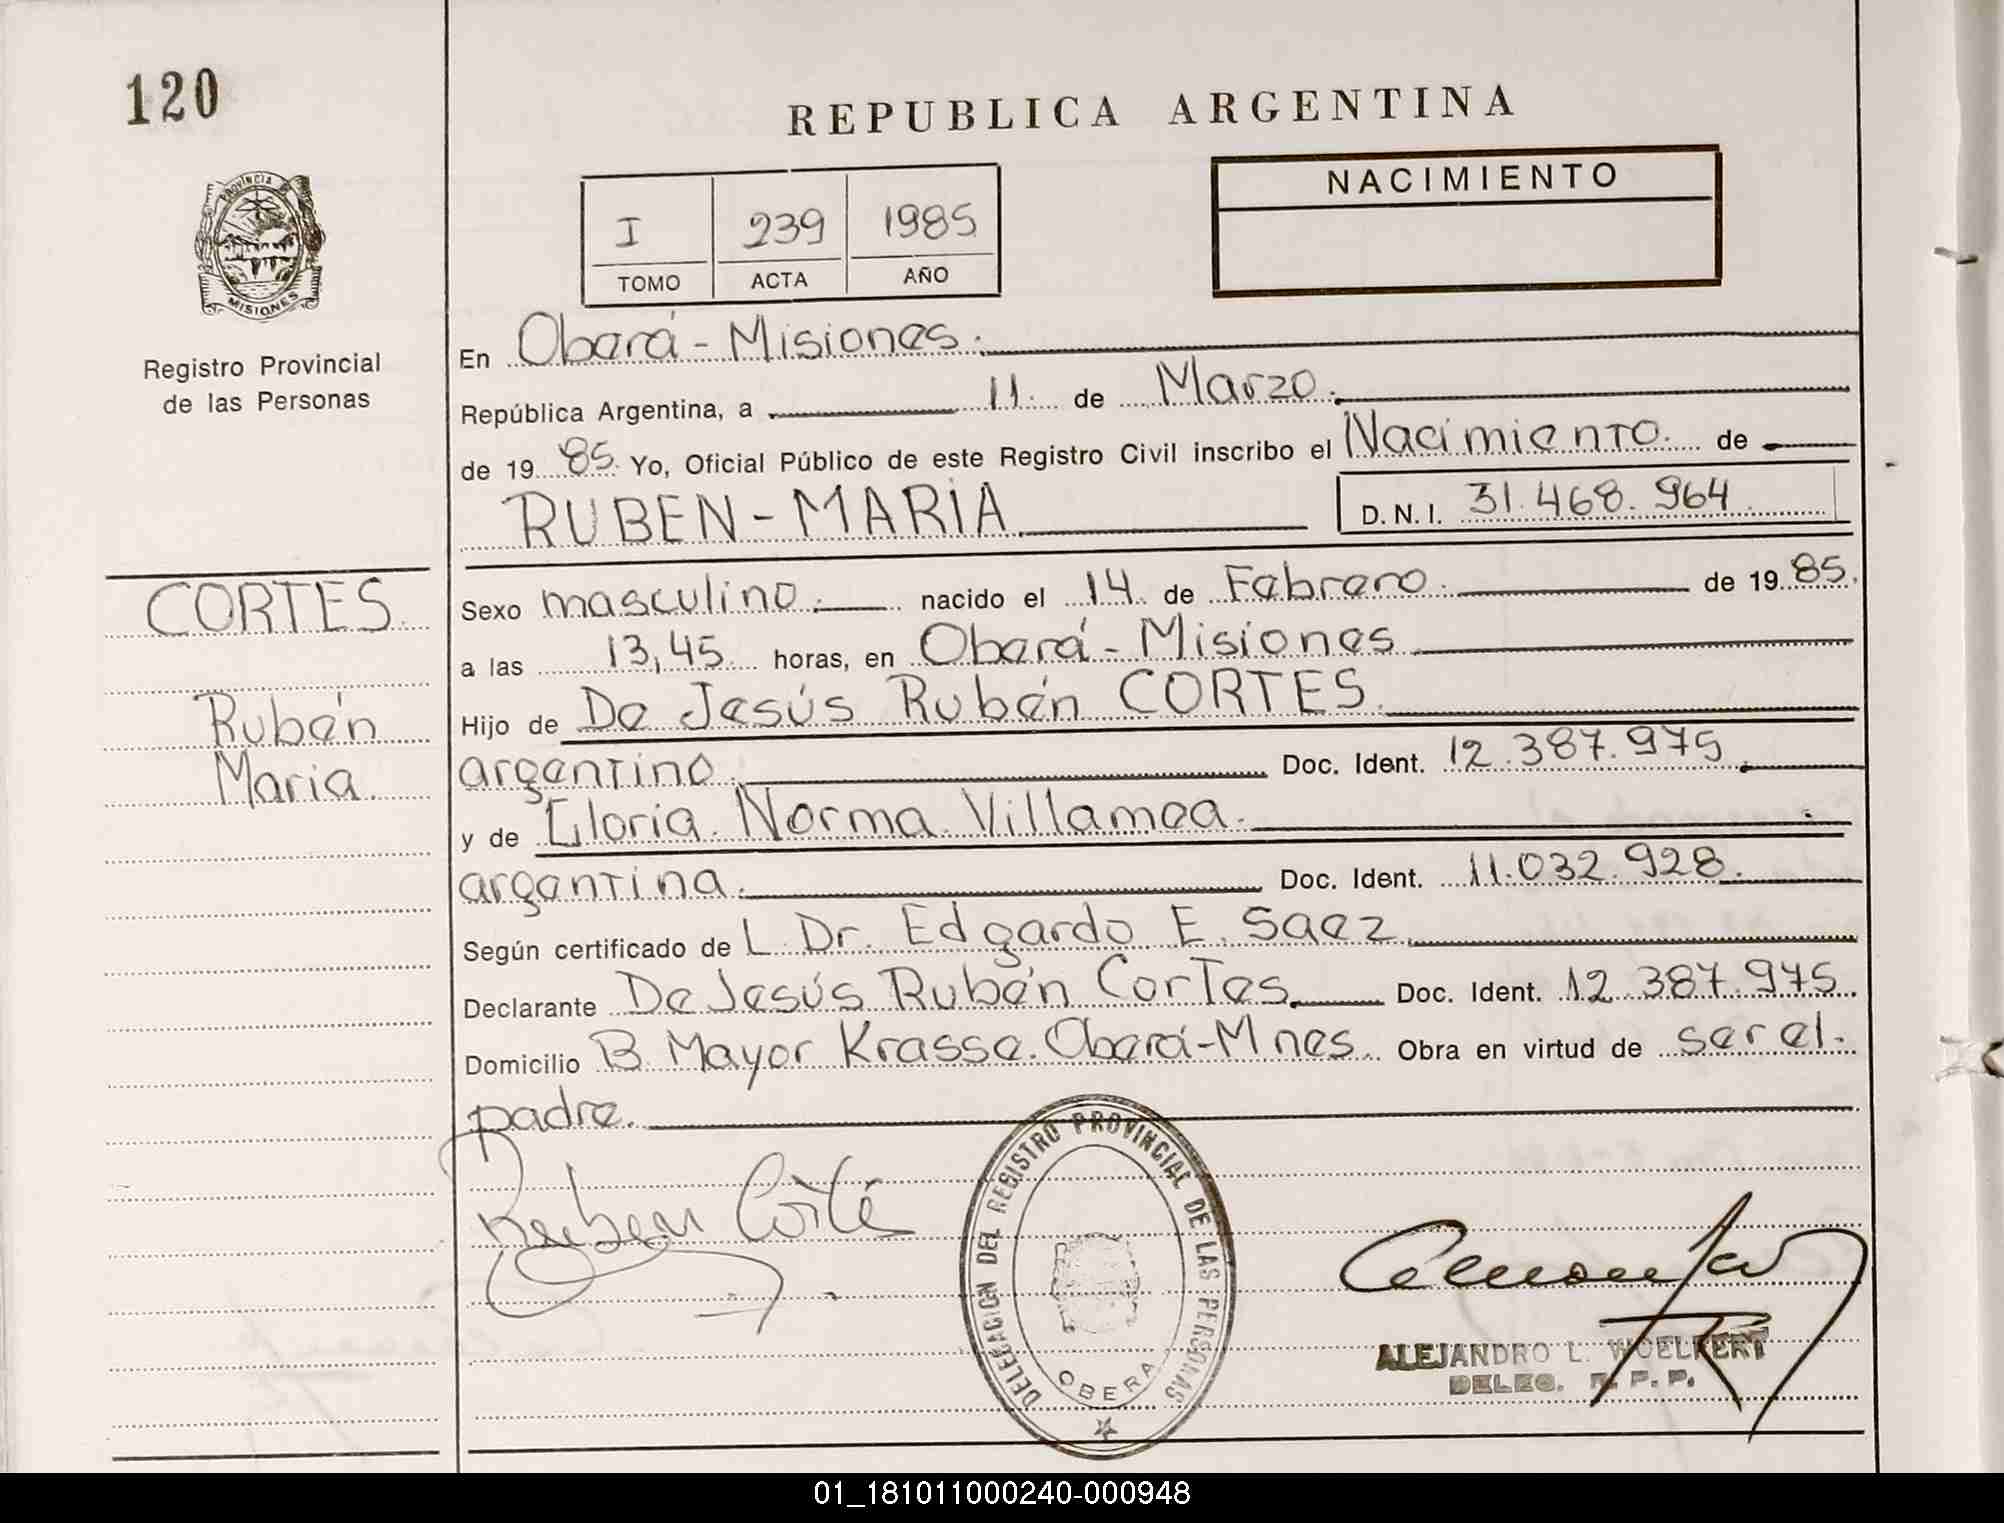 120
REPUBLICA ARGENTINA
PROVINCIA DE
MISIONES
Registro Provincial
de las Personas
I 239 1985
TOMO ACTA AÑO
NACIMIENTO
En Oberá - Misiones.
República Argentina, a 11. de Marzo.
de 19 85. Yo, Oficial Público de este Registro Civil inscribo el Nacimiento. de
RUBEN - MARIA D.N.I. 31.468.964
CORTES.
Rubén
Maria.
Sexo masculino. nacido el 14 de Febrero. de 19 85.
a las 13,45 horas, en Oberá - Misiones
Hijo de De Jesús Rubén CORTES.
argentino. Doc. Ident. 12.387.975
y de Gloria Norma Villamea.
argentina. Doc. Ident. 11.032.928.
Según certificado de L. Dr. Edgardo E. Saez
Declarante De Jesús Rubén Cortes Doc. Ident. 12.387.975
Domicilio B. Mayor Krasse. Oberá-Mnes. Obra en virtud de ser el
padre.
Ruben Corté
DELEGACION DEL REGISTRO PROVINCIAL DE LAS PERSONAS
OBERA
ALEJANDRO L. WOELFERT
DELEG. R. P. P.
01_181011000240-000948